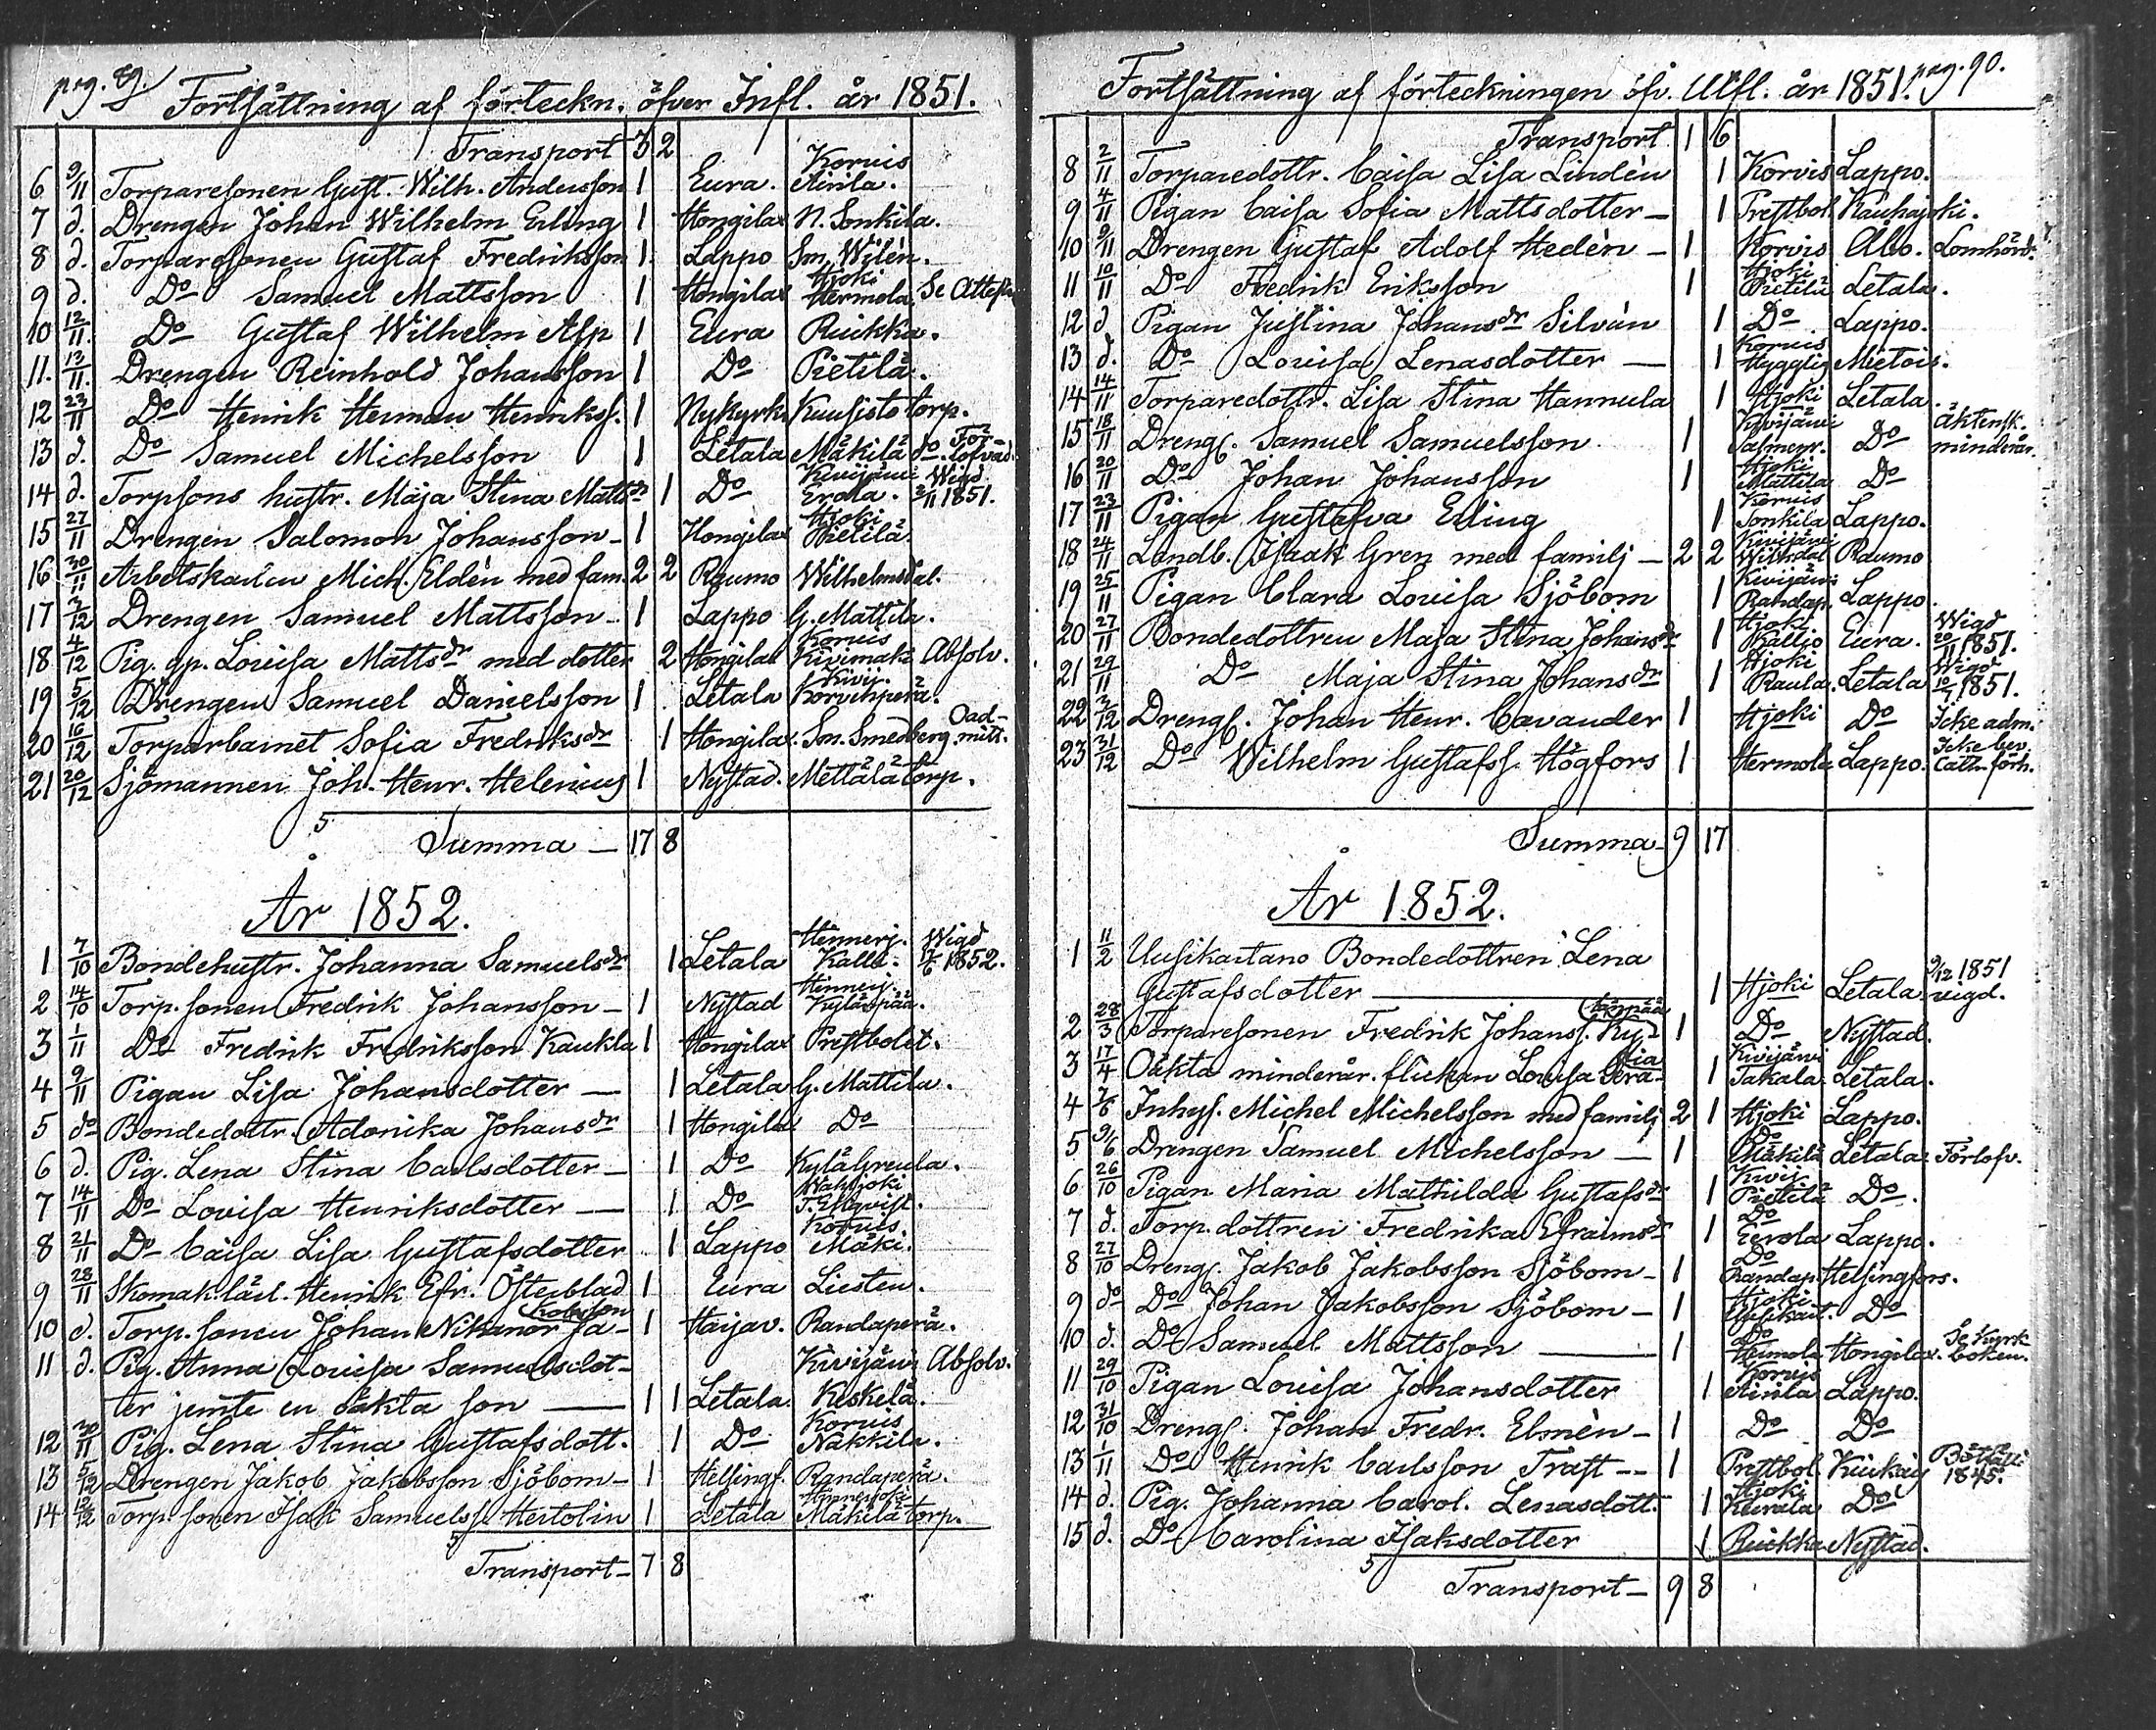 pag. 89.
Fortsättning af förteckn. öfver Infl. år 1851.
Transport 3 2
6 9/11 Torparesonen Gust. Wilh. Andersson 1 Eura. Korvis Airila.
7 d. Drengen Johan Wilhelm Erling 1 Hongilax N. Sonkila.
8 d. Torparesonen Gustaf Fredriksson 1 Lappo Sm. Wilén.
9 d. Do Samuel Mattsson 1 Hongilax Hjoki Hermola Se Attest
10 12/11. Do Gustaf Wilhelm Alp 1 Eura Ruikka.
11. 13/11. Drengen Reinhold Johansson 1 Do Pietilä.
12 23/11 Do Henrik Herman Henrikss. 1 Nykyrko Kuusisto torp.
13 d. Do Samuel Michelsson 1 Letala Mäkilä do. Förlofvad.
14 d. Torpsons hustr. Maja Stina Mattsdr 1 Do Kivijärvi Erola. Wigd 2/11 1851.
15 27/11 Drengen Salomon Johansson 1 Hongilax Hjoki Pietilä
16 30/11 Arbetskarlen Mich. Eldén med fam. 2 2 Raumo Wilhelmsdal.
17 2/12 Drengen Samuel Mattsson 1 Lappo G. Mattila.
18 4/12 Pig. qp. Lovisa Mattsdr med dotter 2 Hongilax Korvis Kivimäki Absolv.
19 5/12 Drengen Samuel Danielsson 1 Letala Kivij. Korvenperä.
20 16/12 Torparbarnet Sofia Fredriksdr 1 Hongilax. Sm. Smedberg. Oad-mitt.
21 20/12 Sjömannen Joh. Henr. Helenius 1 Nystad. Mettälä torp.
Summa — 17 8
År 1852.
1 7/10 Bondehustr. Johanna Samuelsdr 1 Letala Hennerj. Kalla. Wigd /6 1852.
2 14/10 Torp.sonen Fredrik Johansson — 1 Nystad Hinnerj. Kyläspää.
3 1/11 Do Fredrik Fredriksson Kaukla 1 Hongilax Prestbolet.
4 9/11 Pigan Lisa Johansdotter — 1 Letala G. Mattila.
5 do Bondedottr. Adonika Johansdr 1 Hongilax Do
6 d. Pig. Lena Stina Carlsdotter — 1 Do Kylä Greula.
7 14/11 Do Lovisa Henriksdotter — 1 Do Wahajoki
8 21/11 Do Caisa Lisa Gustafsdotter 1 Lappo Korvis Mäki.
9 28/11 Skomak.lärl. Henrik Efr. Österblad 1 Eura Liesten.
10 d. Torp.sonen Johan Nikanor Ja-kobsson 1 Haijav. Randaperä.
11 d. Pig. Anna Lovisa Samuelsdot- Kivijärvi Absolv.
ter jemte en oäkta son — 1 1 Letala. Keskelä.
12 30/11 Pig. Lena Stina Gustafsdott. 1 Do Korvis Näkkilä.
13 5/12 Drengen Jakob Jakobsson Sjöbom — 1 Helsingf. Randaperä.
14 12/12 Torp.sonen Isak Samuelss. Heitolin 1 Letala Hinnerjoki Mäkilä torp.
Transport — 7 8
pag. 90.
Fortsättning af förteckningen öfv. Utfl. år 1851.
Transport 1 6
8 2/11 Torparedottr. Caisa Lisa Lindén 1 Korvis Lappo.
9 4/11 Pigan Caisa Sofia Mattsdotter — 1 Prestbol. Kauhajoki.
10 9/11 Drengen Gustaf Adolf Hedén — 1 Korvis Åbo. Lomhörd.
11 10/11 Do Fredrik Eriksson 1 Hjoki Pietilä Letala.
12 d Pigan Justina Johansdr Silvén 1 Do Lappo.
13 d. Do Lovisa Lenasdotter — 1 Korvis Hyggelig Mietois.
14 14/11 Torparedottr. Lisa Stina Hannula 1 Hjoki Letala.
15 18/11 Drengs. Samuel Samuelsson 1 Kivijärvi Do Äktensk. minderår.
16 20/11 Do Johan Johansson 1 Hjoki Mattila Do
17 23/11 Pigan Gustafva Erling 1 Korvis Sonkila Lappo.
18 24/11 Landb. Isaak Gren med familj — 2 2 Kivijärvi Wilhdal Raumo
19 25/11 Pigan Clara Lovisa Sjöbom 1 Kivijärvi Randap. Lappo.
20 27/11 Bondedottren Maja Stina Johansdr 1 Hjoki Kallio Eura. Wigd 20/11 1851.
21 29/11 Do Maja Stina Johansdr 1 Hjoki Raula. Letala Wigd 1851.
22 2/12 Drengs. Johan Henr. Cavander 1 Hjoki Do Icke adm.
23 31/12 Do Wilhelm Gustafss. Högfors 1 Hermola Lappo. Icke bev. Cath.förh.
Summa 9 17
År 1852.
1 11/2 Uusikartano Bondedottren Lena
Gustafsdotter — 1 Hjoki Letala 9/12 1851 vigd.
2 28/3 Torparesonen Fredrik Johanss. Ky-läspää 1 Do Nystad.
3 17/4 Oäkta minderår. flickan Lovisa 1 Kivijärvi Takala Letala.
4 7/6 Inhys. Michel Michelsson med familj 2 1 Hjoki Lappo.
5 9/6 Drengen Samuel Michelsson — 1 Do Mäkilä Letala. Förlofv.
6 26/10 Pigan Maria Mathilda Gustafsdr 1 Kivij. Pietilä Do.
7 d. Torp.dottren Fredrika Efraimsdr 1 Do Eerola Lappo.
8 27/10 Drengs. Jakob Jakobsson Sjöbom — 1 Do Randap. Helsingfors.
9 do Do Johan Jakobsson Sjöbom — 1 Hjoki Uusikart. Do
10 d. Do Samuel Mattsson — 1 Do Hermola Hongilax. Se Kyrk boken.
11 29/10 Pigan Lovisa Johansdotter 1 Korvis Airila Lappo.
12 31/10 Drengs. Johan Fredr. Elmén — 1 Do Do
13 1/11 Do Henrik Carlsson Traft — 1 Prestbol. Kiukais 1845.
14 d. Pig. Johanna Carol. Lenasdott. 1 Hjoki Keurala Do
15 d. Do Carolina Isaksdotter 1 Ruikka Nystad.
Transport — 9 8